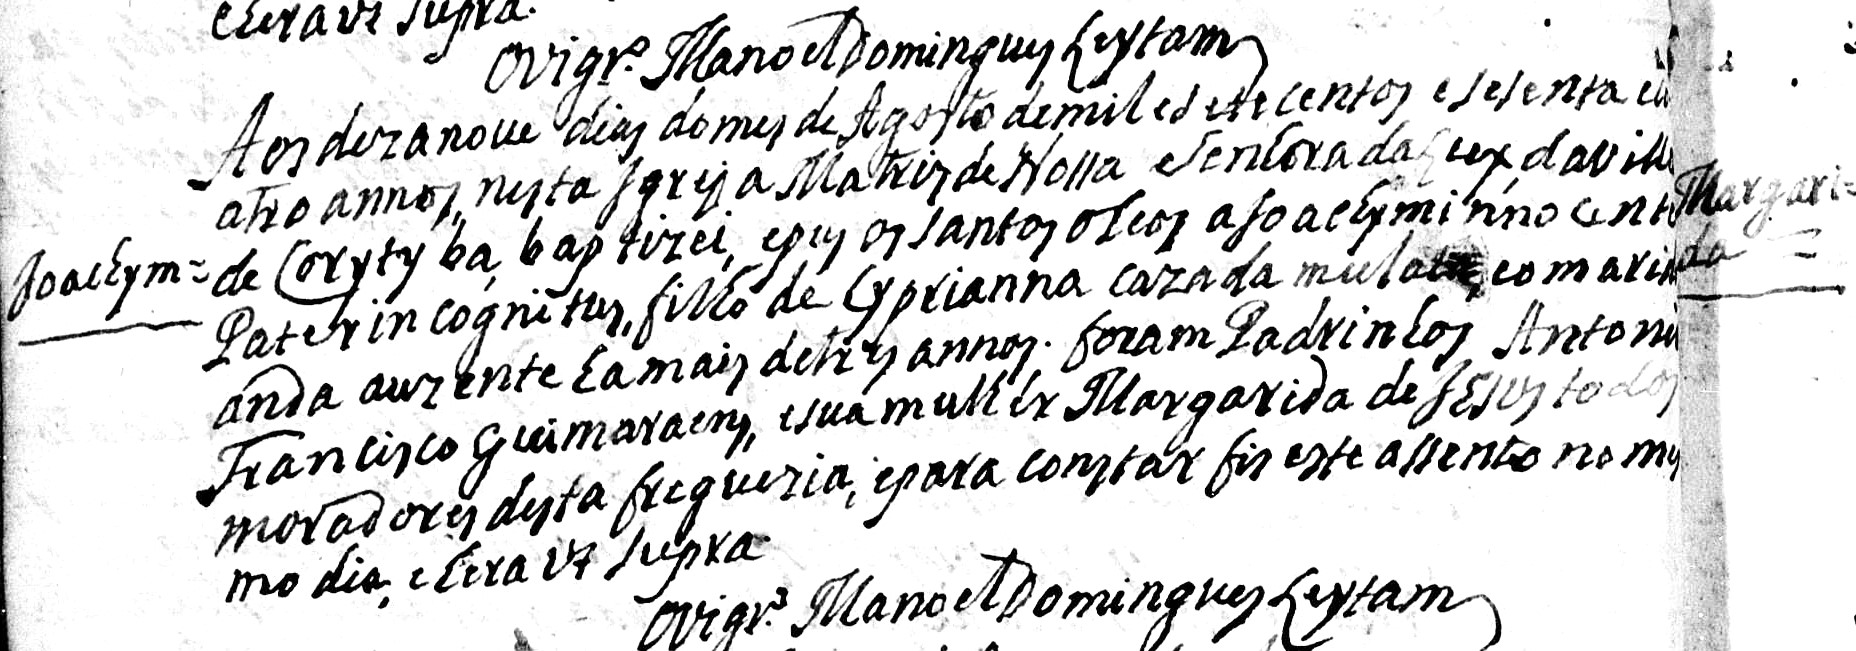 e hera ut supra.
O Vigr.º Manoel Domingues Leytam
Aos dezanove dias do mes de Agosto de mil e sete centos e sesenta e qu
atro annos, nesta Igreja Matriz de Nossa e Senhora da Lux, da villa
Joachym = de Corytyba, baptizei, e pus os santos oleos a Joachym innocente
Pater incognitus, filho de Cyprianna cazada mulata, co marid
anda auzente ha mais de tres annos. foram Padrinhos Antoni
Francisco Guimaraens, e sua mulher Margarida de Jesus todos
moradores desta freguezia, e para constar fis este assento no mes
mo dia, e hera ut supra
O Vigr.º Manoel Domingues Leytam
Margari=
da =